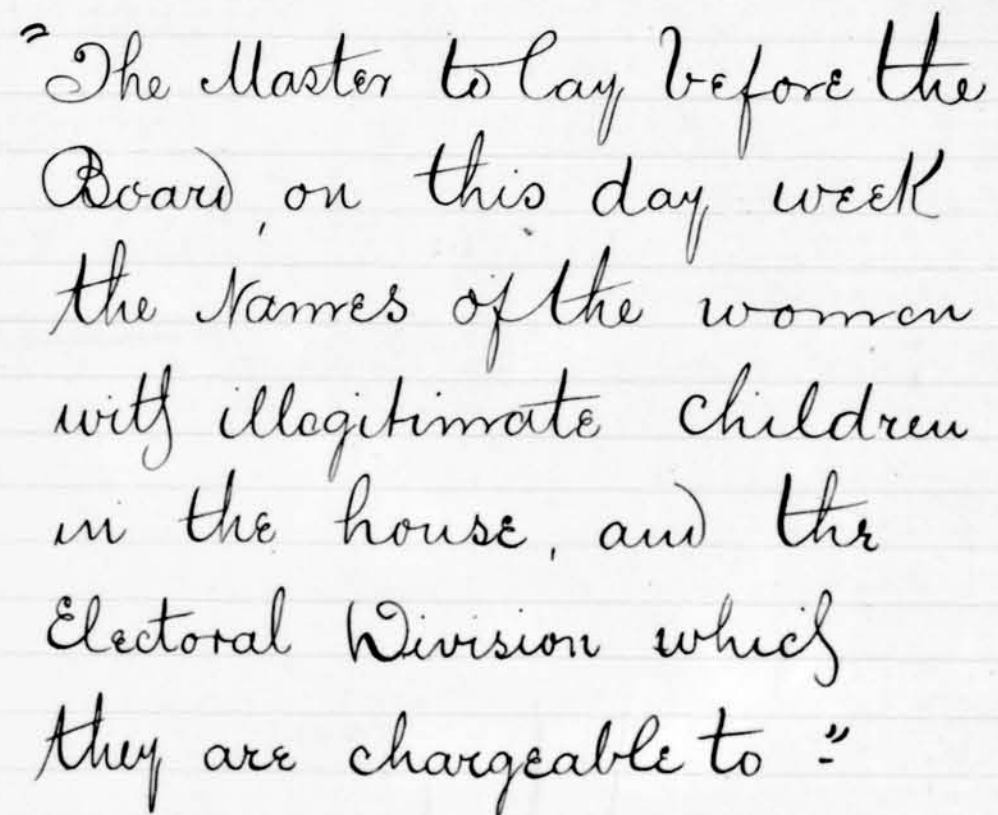 "The Master to lay before the
Board, on this day week
the Names of the women
with illegitimate children
in the house, and the
Electoral Division which
they are chargeable to -"